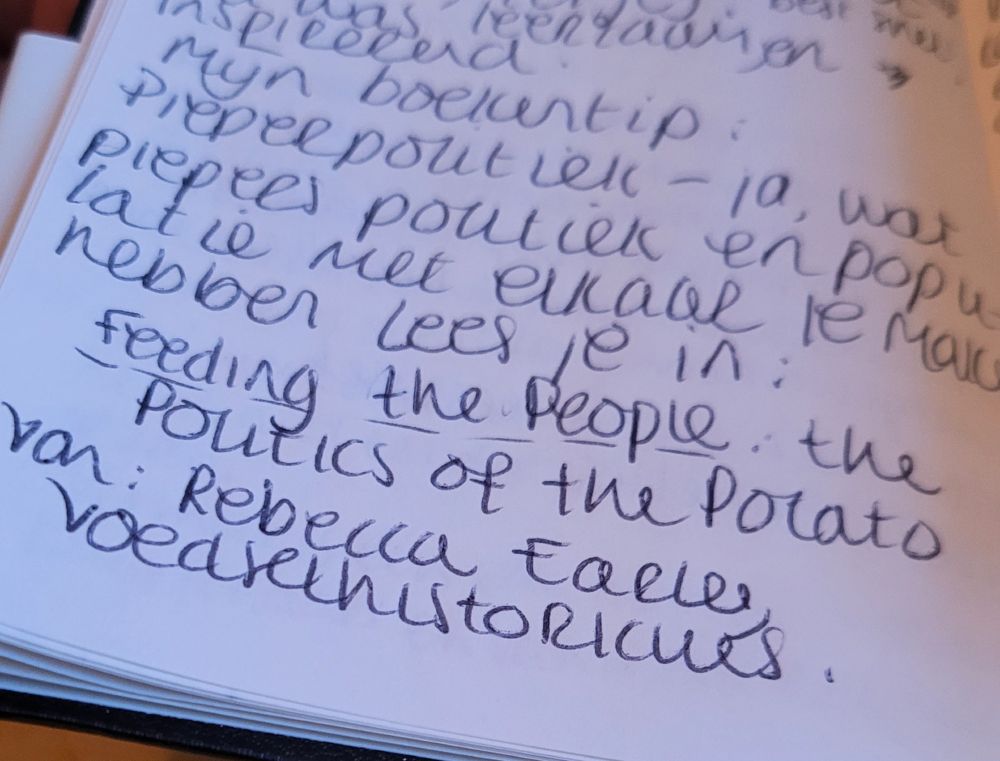 was leerzaam en →
inspireerd.
Mijn boekentip:
Pieperpolitiek – ja, wat
piepers politiek en popu
latie met elkaar te mak
hebben lees je in:
Feeding the People. the
Politics of the Potato
van: Rebecca Earle,
voedselhistoricus.